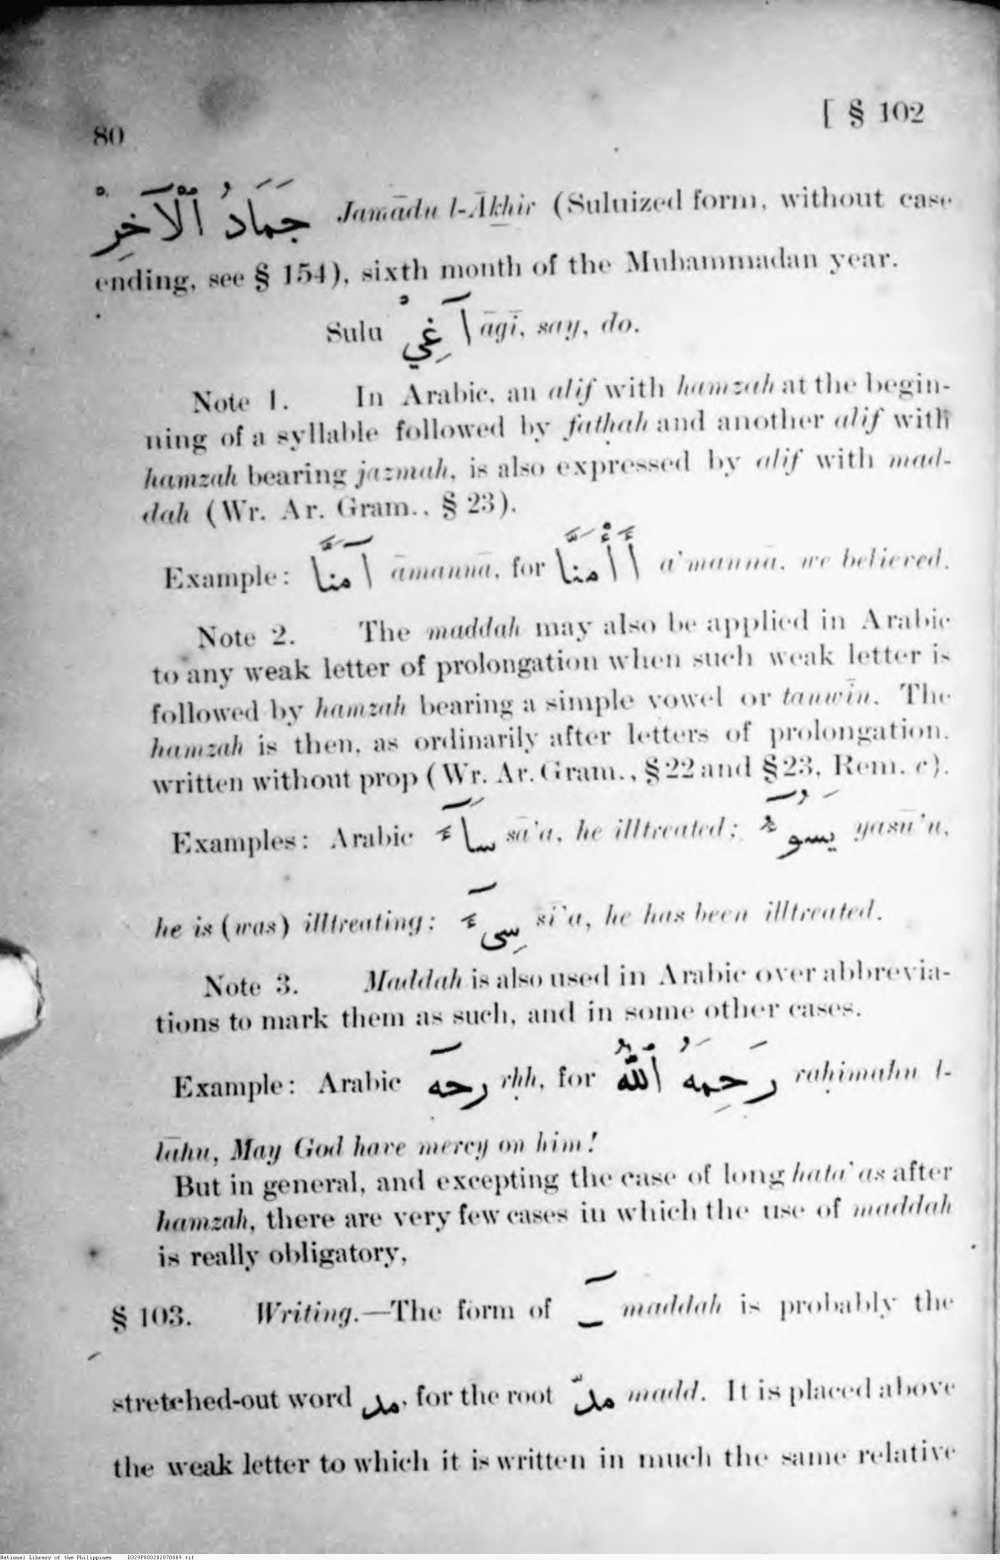 80
[ § 102
جَمَادُ ٱلْآخِرْ Jamādu l-Ākhir (Suluized form, without case
ending, see § 154), sixth month of the Muhammadan year.
Sulu آغِيْ āgī, say, do.
Note 1. In Arabic, an alif with hamzah at the begin-
ning of a syllable followed by fatḥah and another alif with
hamzah bearing jazmah, is also expressed by alif with mad-
dah (Wr. Ar. Gram., § 23).
Example: آمَنَّا āmannā, for أَأْمَنَّا a'mannā, we believed.
Note 2. The maddah may also be applied in Arabic
to any weak letter of prolongation when such weak letter is
followed by hamzah bearing a simple vowel or tanwīn. The
hamzah is then, as ordinarily after letters of prolongation,
written without prop (Wr. Ar. Gram., § 22 and § 23, Rem. c).
Examples: Arabic سَآءَ sā'a, he illtreated; يَسُوٓءُ yasū'u,
he is (was) illtreating; سِىٓءَ sī'a, he has been illtreated.
Note 3. Maddah is also used in Arabic over abbrevia-
tions to mark them as such, and in some other cases.
Example: Arabic رحهٓ rḥh, for رَحِمَهُ ٱللّٰهُ raḥimahu l-
lāhu, May God have mercy on him!
But in general, and excepting the case of long hata'as after
hamzah, there are very few cases in which the use of maddah
is really obligatory,
§ 103. Writing.—The form of ـٓ maddah is probably the
stretched-out word مد, for the root مدّ madd. It is placed above
the weak letter to which it is written in much the same relative
National Library of the Philippines